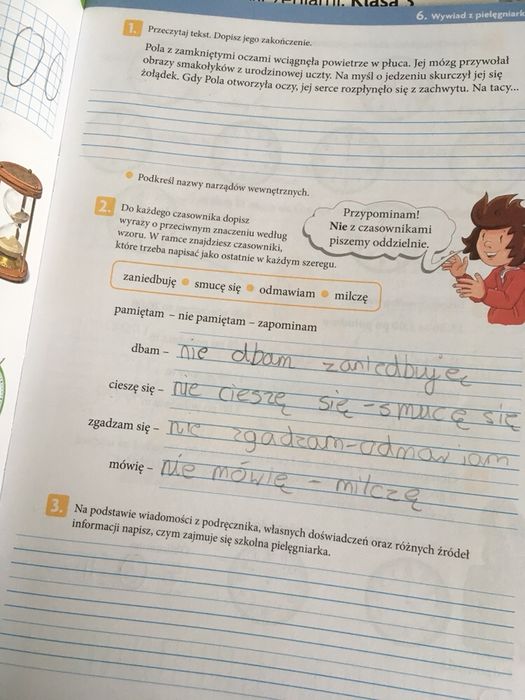 Klasa 3
6. Wywiad z pielęgniark
1. Przeczytaj tekst. Dopisz jego zakończenie.
Pola z zamkniętymi oczami wciągnęła powietrze w płuca. Jej mózg przywołał
obrazy smakołyków z urodzinowej uczty. Na myśl o jedzeniu skurczył jej się
żołądek. Gdy Pola otworzyła oczy, jej serce rozpłynęło się z zachwytu. Na tacy...
Podkreśl nazwy narządów wewnętrznych.
2. Do każdego czasownika dopisz
wyrazy o przeciwnym znaczeniu według
wzoru. W ramce znajdziesz czasowniki,
które trzeba napisać jako ostatnie w każdym szeregu.
Przypominam!
Nie z czasownikami
piszemy oddzielnie.
zaniedbuję • smucę się • odmawiam • milczę
pamiętam – nie pamiętam – zapominam
dbam – nie dbam zaniedbuję
cieszę się – nie cieszę się – smucę się
zgadzam się – nie zgadzam – odmawiam
mówię – nie mówię – milczę
3. Na podstawie wiadomości z podręcznika, własnych doświadczeń oraz różnych źródeł
informacji napisz, czym zajmuje się szkolna pielęgniarka.